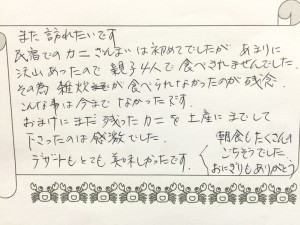 また 訪れたいです
民宿でのカニざんまいは初めてでしたが あまりに
沢山あったので 親子4人で食べきれませんでした。
その為 雑炊が食べられなかったのが残念
こんな事は今までなかったです。
おまけにまだ残ったカニを土産にまでして
下さったのは感激でした。
デザートもとても美味しかったです。
朝食もたくさん
ごちそうでした。
おにぎりもありがとう